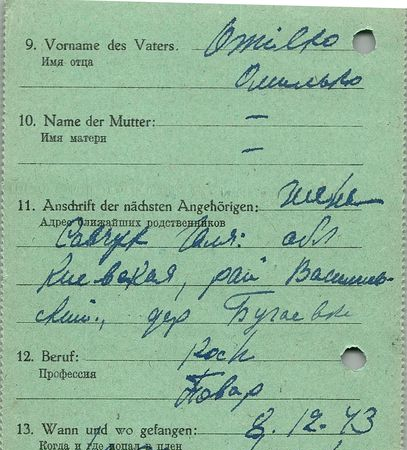 9. Vorname des Vaters. Omelko
Имя отца
Омилько
10. Name der Mutter: –
Имя матери –
11. Anschrift der nächsten Angehörigen: жена
Адрес ближайших родственников
Савчук обл
Киевская, рай Василь-
ский., дер Бугаевка
12. Beruf: Koch
Профессия
Повар
13. Wann und wo gefangen: 8.12.43
Когда и где попал в плен